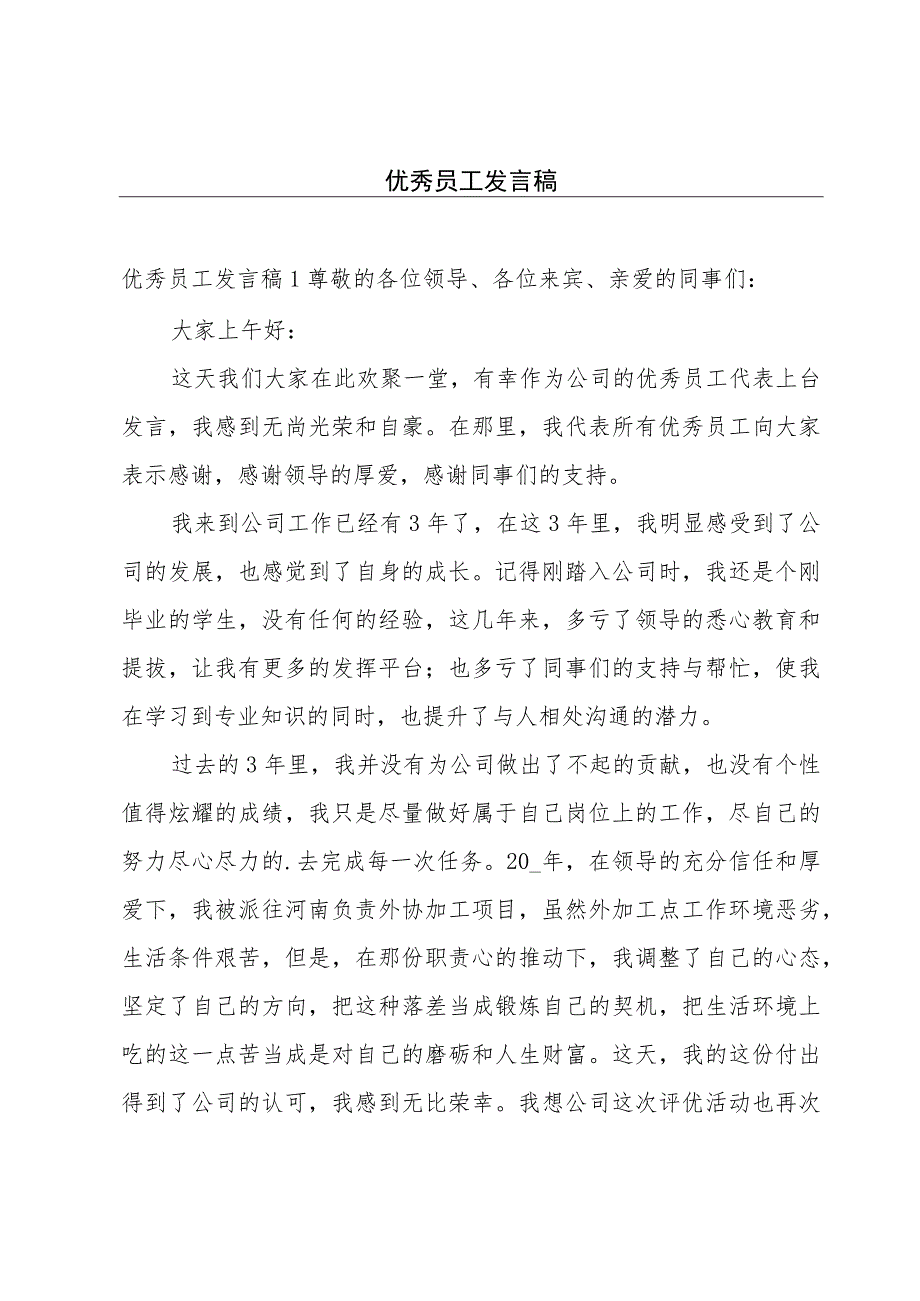 优秀员工发言稿
优秀员工发言稿1尊敬的各位领导、各位来宾、亲爱的同事们：
大家上午好：
这天我们大家在此欢聚一堂，有幸作为公司的优秀员工代表上台
发言，我感到无尚光荣和自豪。在那里，我代表所有优秀员工向大家
表示感谢，感谢领导的厚爱，感谢同事们的支持。
我来到公司工作已经有3年了，在这3年里，我明显感受到了公
司的发展，也感觉到了自身的成长。记得刚踏入公司时，我还是个刚
毕业的学生，没有任何的经验，这几年来，多亏了领导的悉心教育和
提拔，让我有更多的发挥平台；也多亏了同事们的支持与帮忙，使我
在学习到专业知识的同时，也提升了与人相处沟通的潜力。
过去的3年里，我并没有为公司做出了不起的贡献，也没有个性
值得炫耀的成绩，我只是尽量做好属于自己岗位上的工作，尽自己的
努力尽心尽力的.去完成每一次任务。20_年，在领导的充分信任和厚
爱下，我被派往河南负责外协加工项目，虽然外加工点工作环境恶劣，
生活条件艰苦，但是，在那份职责心的推动下，我调整了自己的心态，
坚定了自己的方向，把这种落差当成锻炼自己的契机，把生活环境上
吃的这一点苦当成是对自己的磨砺和人生财富。这天，我的这份付出
得到了公司的认可，我感到无比荣幸。我想公司这次评优活动也再次